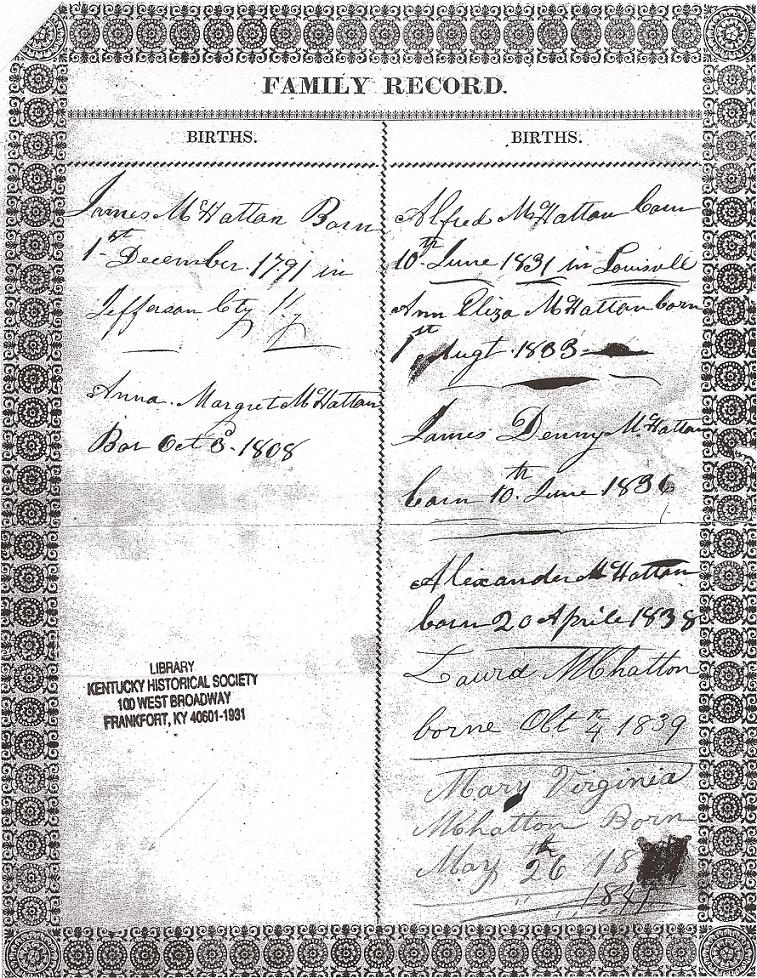 FAMILY RECORD.
BIRTHS.
James McHatton Born
1st December 1791 in
Jefferson Cty
Anna Margret McHatton
Bor Oct 3d 1808
LIBRARY
KENTUCKY HISTORICAL SOCIETY
100 WEST BROADWAY
FRANKFORT, KY 40601-1931
BIRTHS.
Alfred McHatton born
10th June 1831 in Louisvill
Ann Eliza McHatton born
1st Augt 1833
James Denny McHatton
born 10th June 1836
Alexander McHatton
born 20 Aprile 1838
Laura Mchatton
borne Obt 4th 1839
Mary Virginia
Mchatton Born
May 26th 18
1841